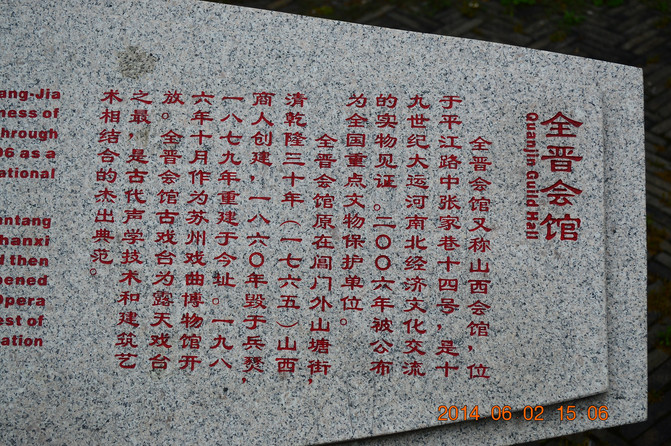 全晋会馆
Quanjin Guild Hall
全晋会馆又称山西会馆，位
于平江路中张家巷十四号，是十
九世纪大运河南北经济文化交流
的实物见证。二〇〇六年被公布
为全国重点文物保护单位。
全晋会馆原在阊门外山塘街，
清乾隆三十年（一七六五）山西
商人创建，一八六〇年毁于兵燹，
一八七九年重建于今址。一九八
六年十月作为苏州戏曲博物馆开
放。全晋会馆古戏台为露天戏台
之最，是古代声学技术和建筑艺
术相结合的杰出典范。
ang-Jia
ness of
hrough
06 as a
ational
antang
hanxi
d then
pened
Opera
est of
ation
2014 06 02 15:06